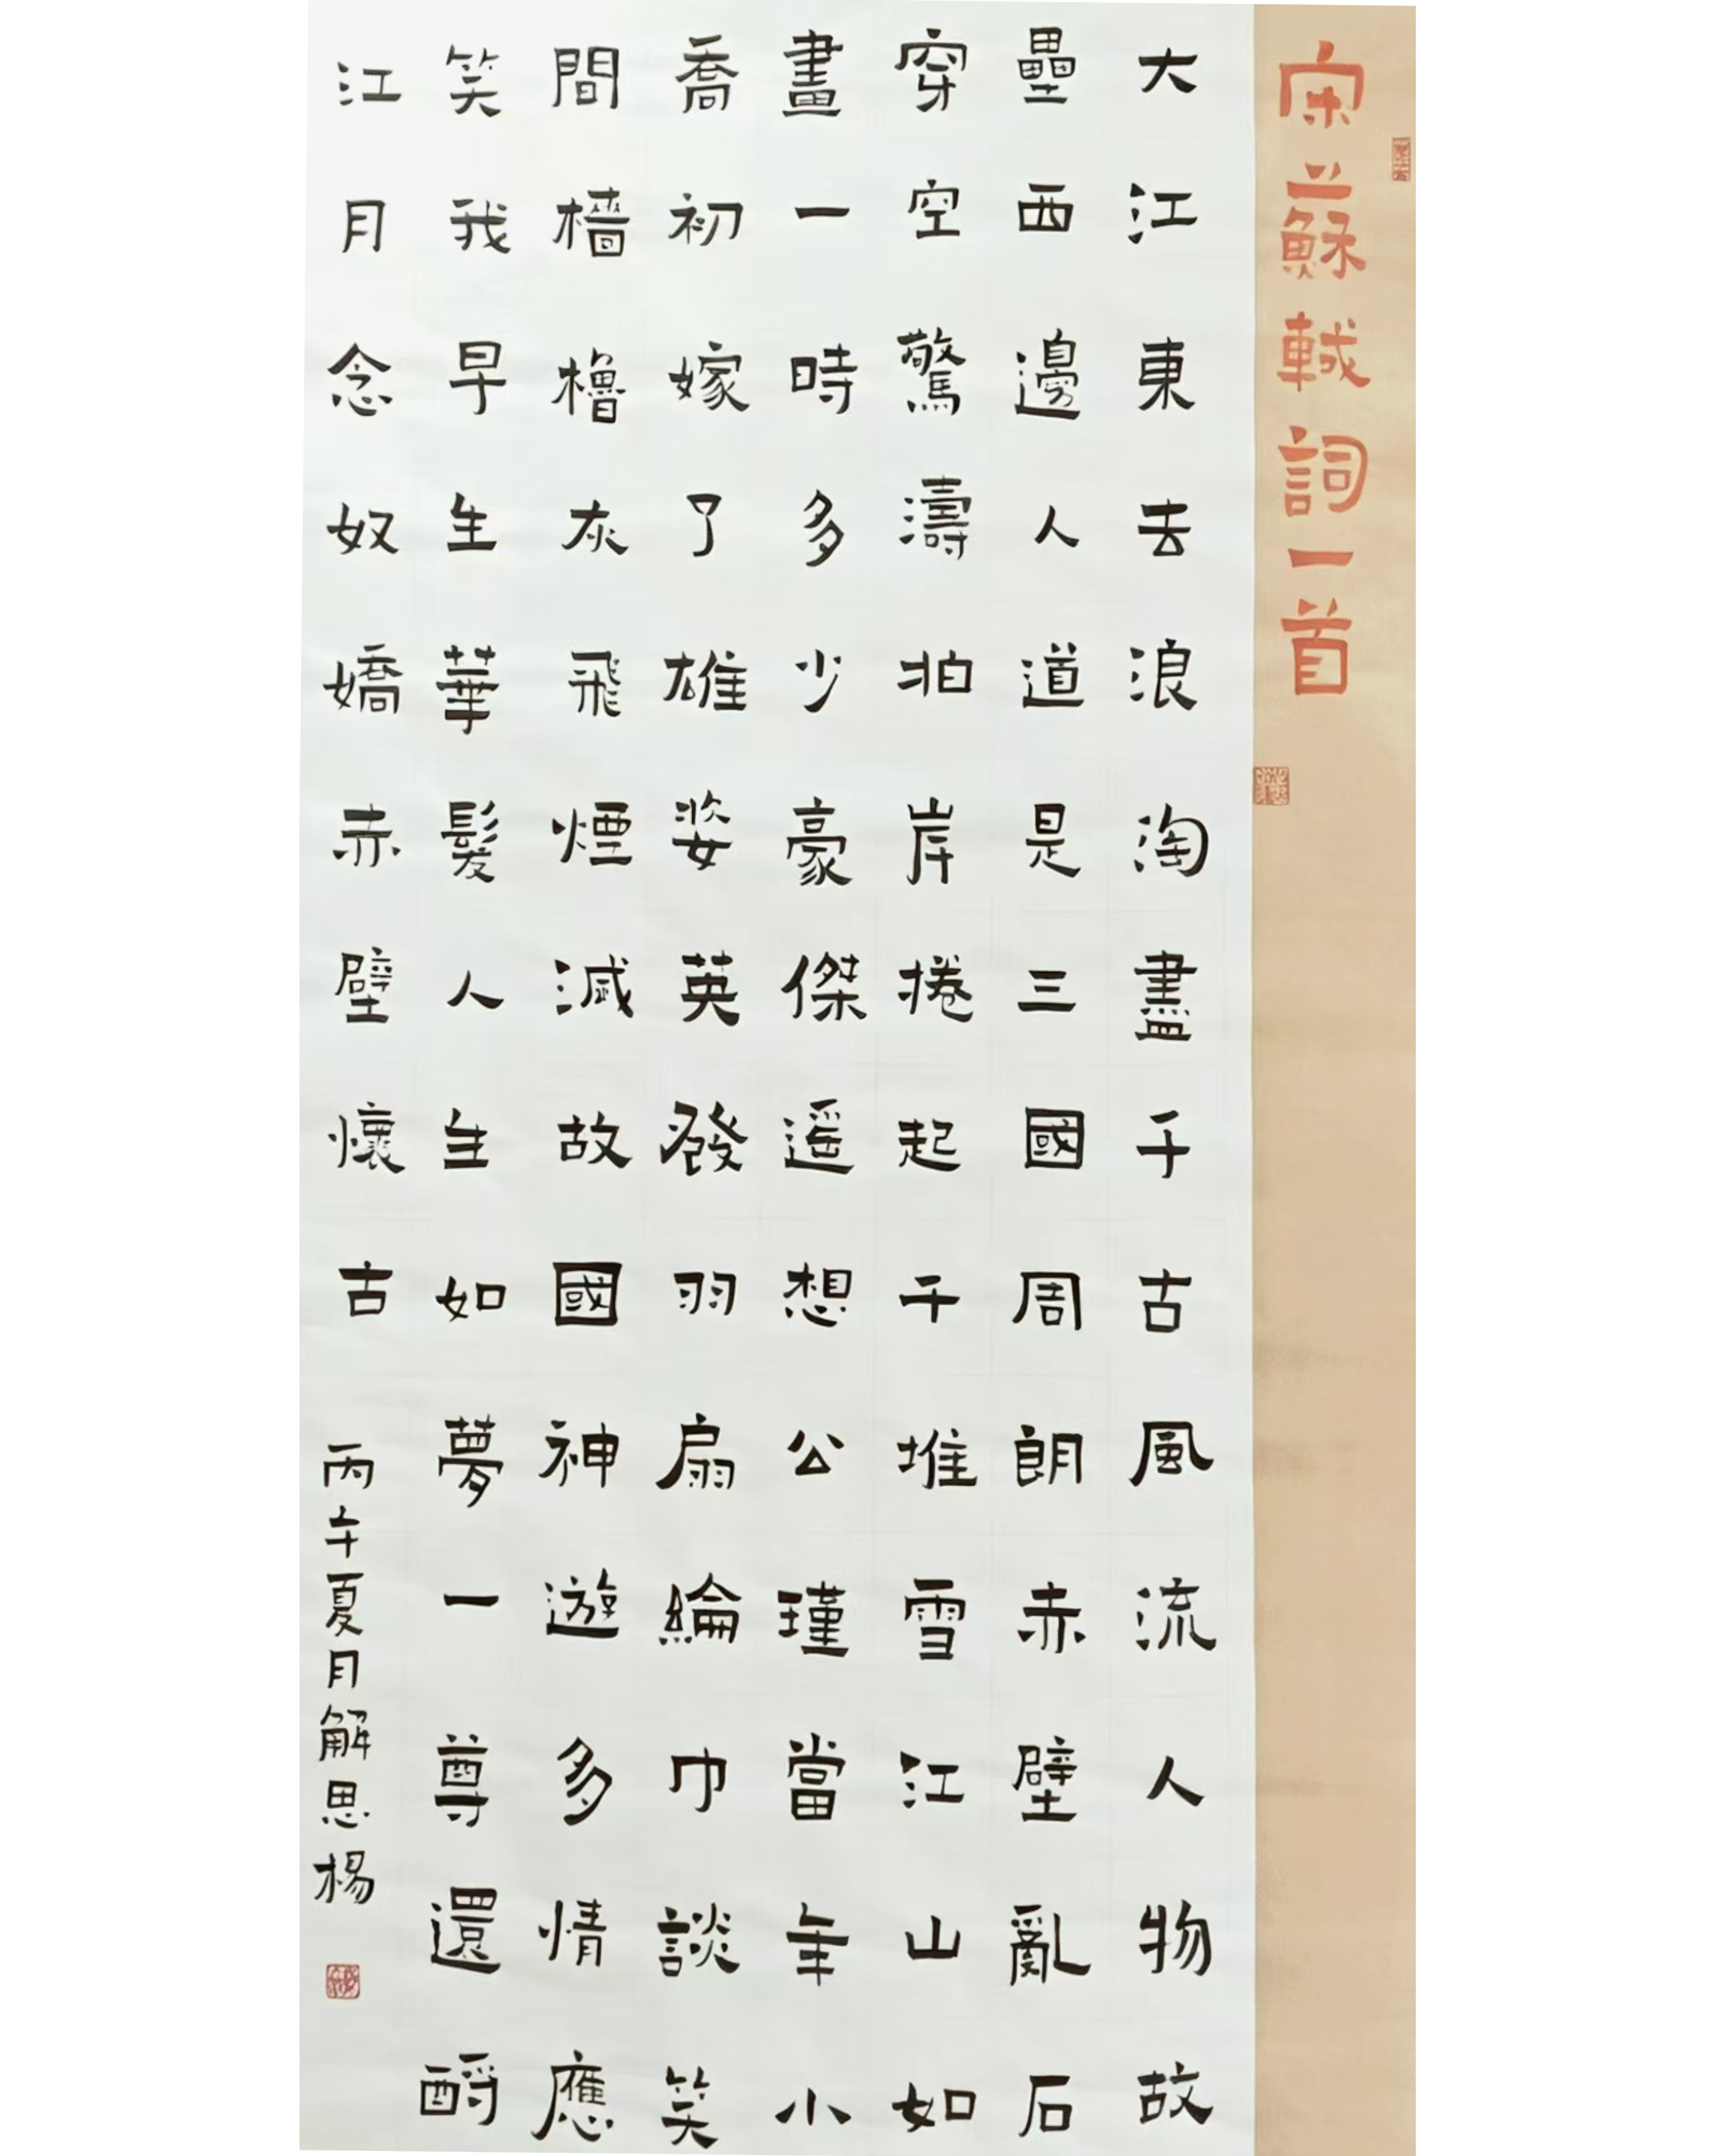 宋蘇軾詞一首
大江東去浪淘盡千古風流人物故
壘西邊人道是三國周朗赤壁亂石
穿空驚濤拍岸捲起千堆雪江山如
畫一時多少豪傑遥想公瑾當年小
喬初嫁了雄姿英發羽扇綸巾談笑
間檣櫓灰飛煙滅故國神遊多情應
笑我早生華髮人生如夢一尊還酹
江月念奴嬌赤壁懷古
丙午夏月解思楊